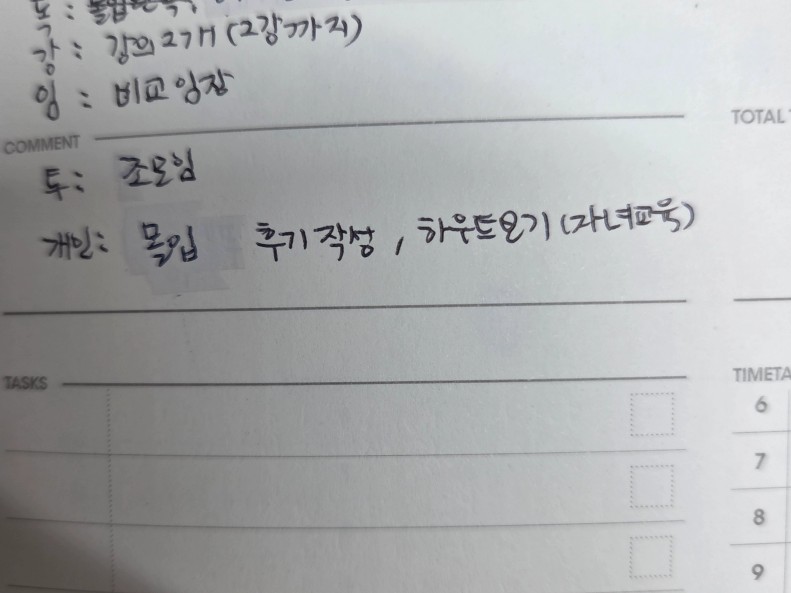 독 :
강 : 강의 2개 (2강까지)
임 : 비교임장
TOTAL
COMMENT
투 : 조모임
개인 : 몰입 후기 작성 , 하우투읽기 (자녀교육)
TASKS
TIMETA
6
7
8
9